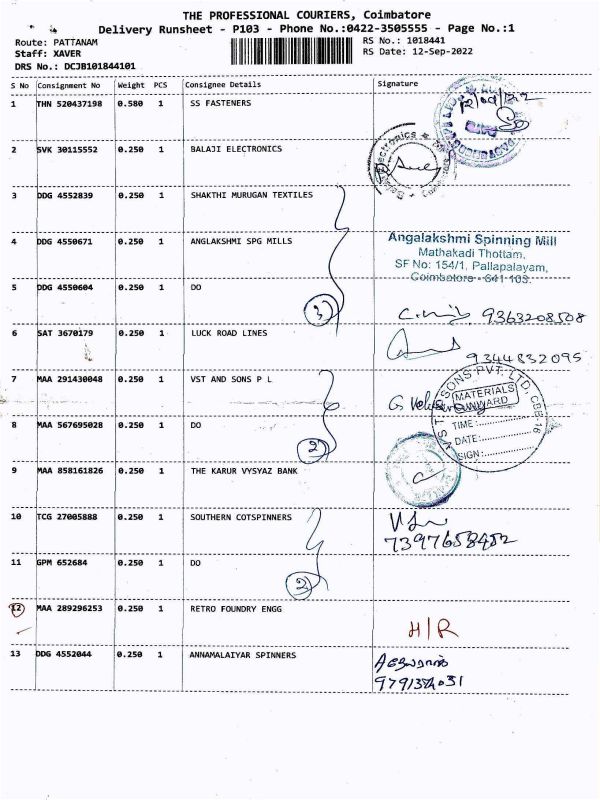 THE PROFESSIONAL COURIERS, Coimbatore
Delivery Runsheet - P103 - Phone No.:0422-3505555 - Page No.:1
Route: PATTANAM
RS No.: 1018441
Staff: XAVER
RS Date: 12-Sep-2022
DRS No.: DCJB101844101
S No Consignment No Weight PCS Consignee Details Signature
1 THN 520437198 0.580 1 SS FASTENERS
2 SVK 30115552 0.250 1 BALAJI ELECTRONICS
3 DDG 4552839 0.250 1 SHAKTHI MURUGAN TEXTILES
4 DDG 4550671 0.250 1 ANGLAKSHMI SPG MILLS
Angalakshmi Spinning Mill
Mathakadi Thottam,
SF No: 154/1, Pallapalayam,
Coimbatore - 641 103.
5 DDG 4550604 0.250 1 DO
3
9363208508
6 SAT 3670179 0.250 1 LUCK ROAD LINES
9344832095
7 MAA 291430048 0.250 1 VST AND SONS P L
VST SONS PVT. LTD, CBE-16
MATERIALS
INWARD
TIME:
DATE:
SIGN:
8 MAA 567695028 0.250 1 DO
2
9 MAA 858161826 0.250 1 THE KARUR VYSYAZ BANK
10 TCG 27005888 0.250 1 SOUTHERN COTSPINNERS
7397658452
11 GPM 652684 0.250 1 DO
2
12 MAA 289296253 0.250 1 RETRO FOUNDRY ENGG
H/R
13 DDG 4552044 0.250 1 ANNAMALAIYAR SPINNERS